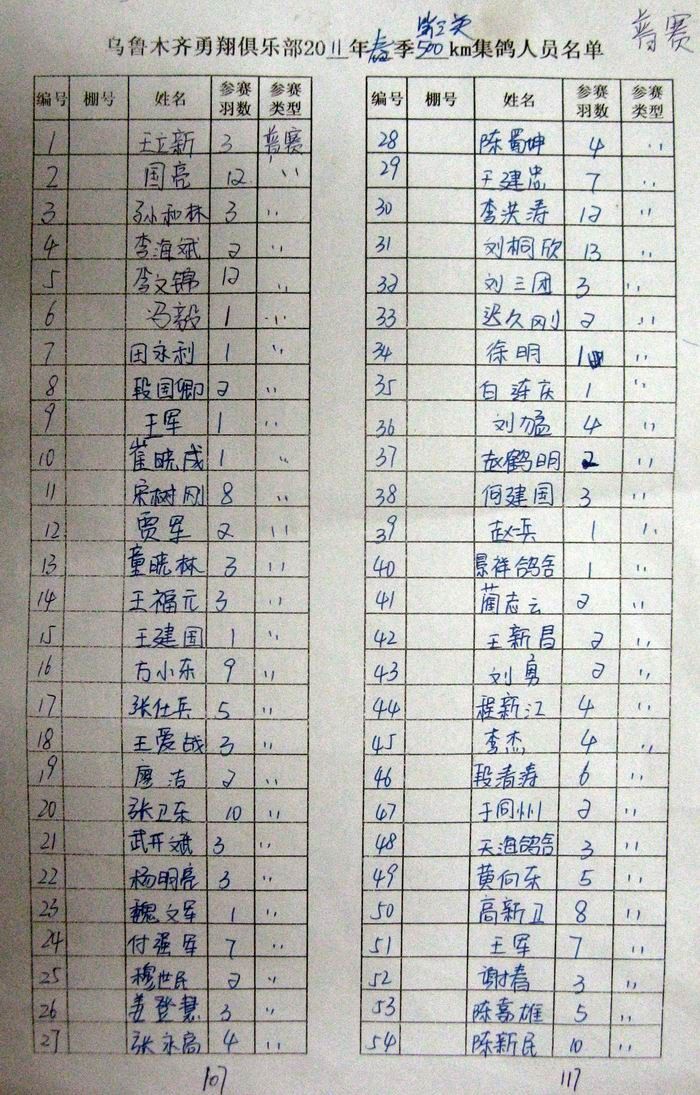 普赛
第三关
乌鲁木齐勇翔俱乐部2011年春季500km集鸽人员名单
编号 棚号 姓名 参赛羽数 参赛类型
1 王立新 3 普赛
2 国亮 12 〃
3 孙和林 3 〃
4 李海斌 2 〃
5 李文锦 12 〃
6 冯毅 1 〃
7 田永利 1 〃
8 段国卿 2 〃
9 王军 1 〃
10 崔晓成 1 〃
11 宋树刚 8 〃
12 贾军 2 〃
13 童晓林 3 〃
14 王福元 3 〃
15 王建国 1 〃
16 方小东 9 〃
17 张仕兵 5 〃
18 王爱战 3 〃
19 廖洁 2 〃
20 张卫东 10 〃
21 武开斌 3 〃
22 杨明亮 3 〃
23 魏文军 1 〃
24 付强军 7 〃
25 穆世民 2 〃
26 姜登慧 3 〃
27 张永高 4 〃
107
编号 棚号 姓名 参赛羽数 参赛类型
28 陈蜀坤 4 〃
29 于建忠 7 〃
30 李洪涛 12 〃
31 刘桐欣 13 〃
32 刘三团 3 〃
33 迟久刚 2 〃
34 徐明 1 〃
35 白连庆 1 〃
36 刘猛 4 〃
37 赵鹤明 2 〃
38 何建国 3 〃
39 赵兵 1 〃
40 景祥鸽舍 1 〃
41 蔺志云 2 〃
42 王新昌 2 〃
43 刘勇 2 〃
44 程新江 4 〃
45 李杰 4 〃
46 段清涛 6 〃
47 于同州 2 〃
48 天海鸽舍 3 〃
49 黄向东 5 〃
50 高新卫 8 〃
51 王军 7 〃
52 谢春 3 〃
53 陈嘉雄 5 〃
54 陈新民 10 〃
117